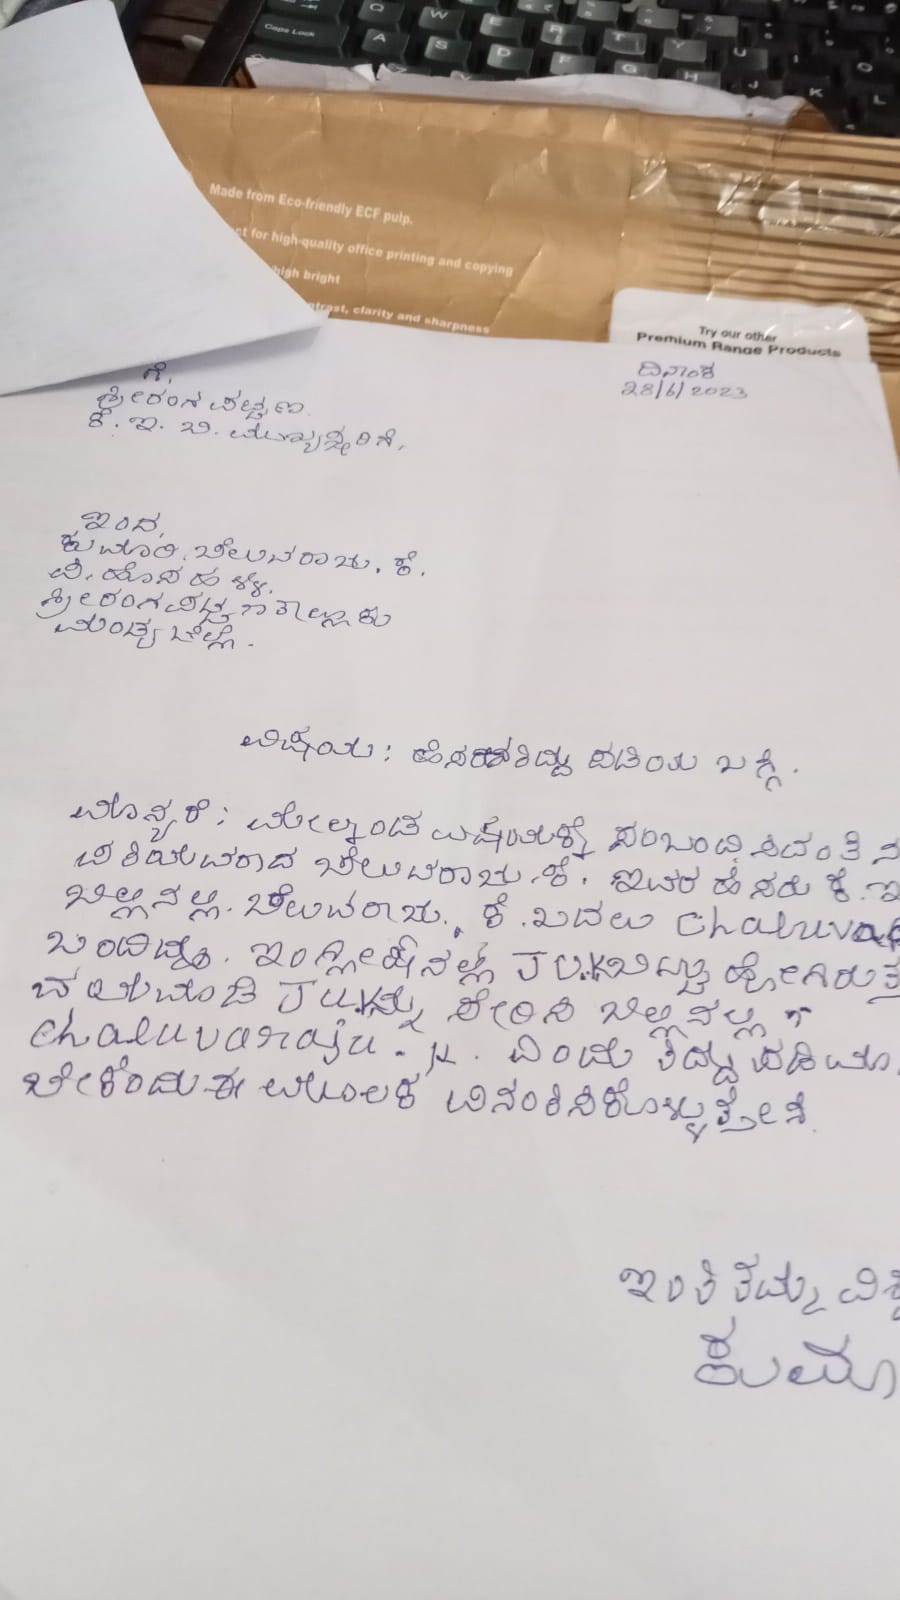 Caps Lock Q W E R T Y U A S D F G H J K L O
Made from Eco-friendly ECF pulp.
ct for high-quality office printing and copying
high bright
ntrast, clarity and sharpness
Try our other
Premium Range Products
ಗೆ,
ಶ್ರೀರಂಗಪಟ್ಟಣ.
ಕೆ. ಇ. ಬಿ. ಮುಖ್ಯಸ್ಥರಿಗೆ,
ದಿನಾಂಕ
28/6/2023
ಇಂದ,
ಕುಮಾರಿ. ಚೆಲುವರಾಜು. ಕೆ.
ಪಿ. ಹೊಸಹಳ್ಳಿ.
ಶ್ರೀರಂಗಪಟ್ಟಣ ತಾಲ್ಲೂಕು
ಮಂಡ್ಯ ಜಿಲ್ಲೆ.
ವಿಷಯ: ತಿದ್ದು ಪಡಿಯ ಬಗ್ಗೆ.
ಮಾನ್ಯರೆ: ಮೇಲ್ಕಂಡ ವಿಷಯಕ್ಕೆ ಸಂಬಂದಿಸಿದಂತೆ ನ
ಪತಿಯವರಾದ ಚೆಲುವರಾಜು. ಕೆ. ಇವರ ಹೆಸರು ಕೆ. ಇ
ಬಿಲ್ಲಿನಲ್ಲಿ. ಚೆಲುವರಾಜು. ಕೆ. ಬದಲು Chaluva
ಬಂದಿದ್ದು. ಇಂಗ್ಲೀಷ್‌ನಲ್ಲಿ JU.K ಬಿಟ್ಟು ಹೋಗಿರುತ್ತ
ದಯಮಾಡಿ JU.K ನ್ನು ಸೇರಿಸಿ ಬಿಲ್ಲಿನಲ್ಲಿ
Chaluvaraju. K. ಎಂದು ತಿದ್ದು ಪಡಿ ಮಾ
ಬೇಕೆಂದು ಈ ಮೂಲಕ ವಿನಂತಿಸಿಕೊಳ್ಳುತ್ತೇನೆ.
ಇಂತಿ ತಮ್ಮ ವಿಶ್ವ
ಕುಮಾ